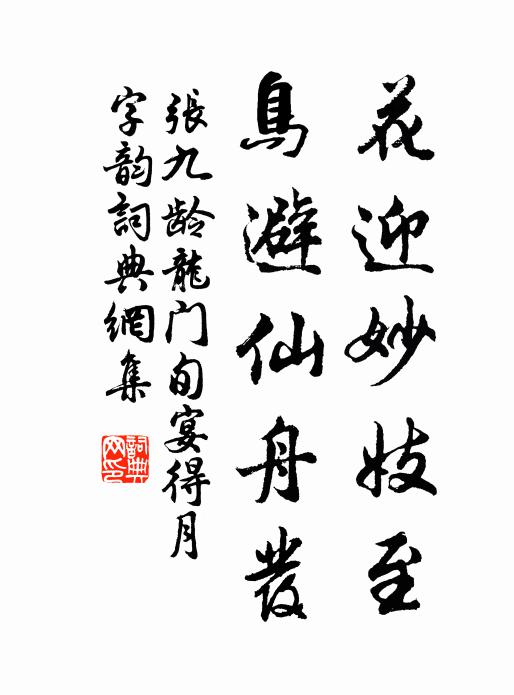 花迎妙妓至
鳥避仙舟發
張九龄龍门旬宴得月
字韵詞典網集
詞典网印